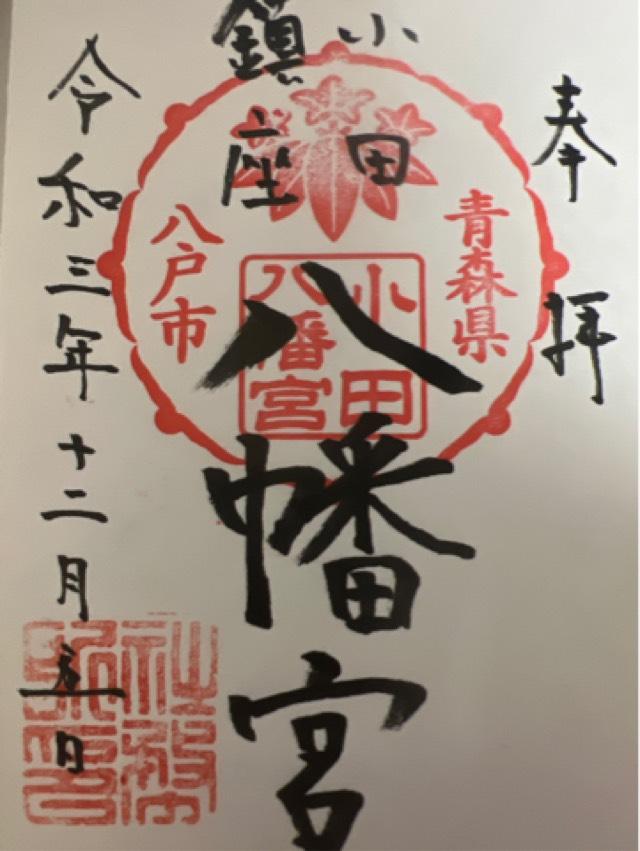 奉拝
青森県
小田
鎮座
八幡宮
小田
八幡宮
八戸市
令和三年十二月五日
社務
所印